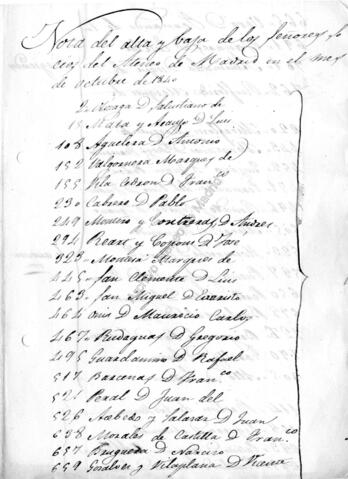 Nota del alta y baja de los Señores So
cios del Ateneo de Madrid en el mes
de octubre de 1840
2 Olozaga D Salustiano de
15 Mata y Araujo D Luis
108 Aguilera D Antonio
152 Valgornera Marques de
155 Vila Cedron D Franco
230 Cabrero D Pablo
249 Montero y Contreras D Andres
294 Reart y Copons D Jose
323 Marques de
445 San Clemente D Luis
463 San Miguel D Evaristo
464 Onis D Mauricio Carlos
467 D Gregorio
495 Guardamino D Rafael
517 Barcenas D Franco
521 Peral D Juan del
526 Acebedo y Salazar D Juan
638 Morales de Castilla D Franco
657 Bruguera D Narciso
659 y Vilaplana D Vicente